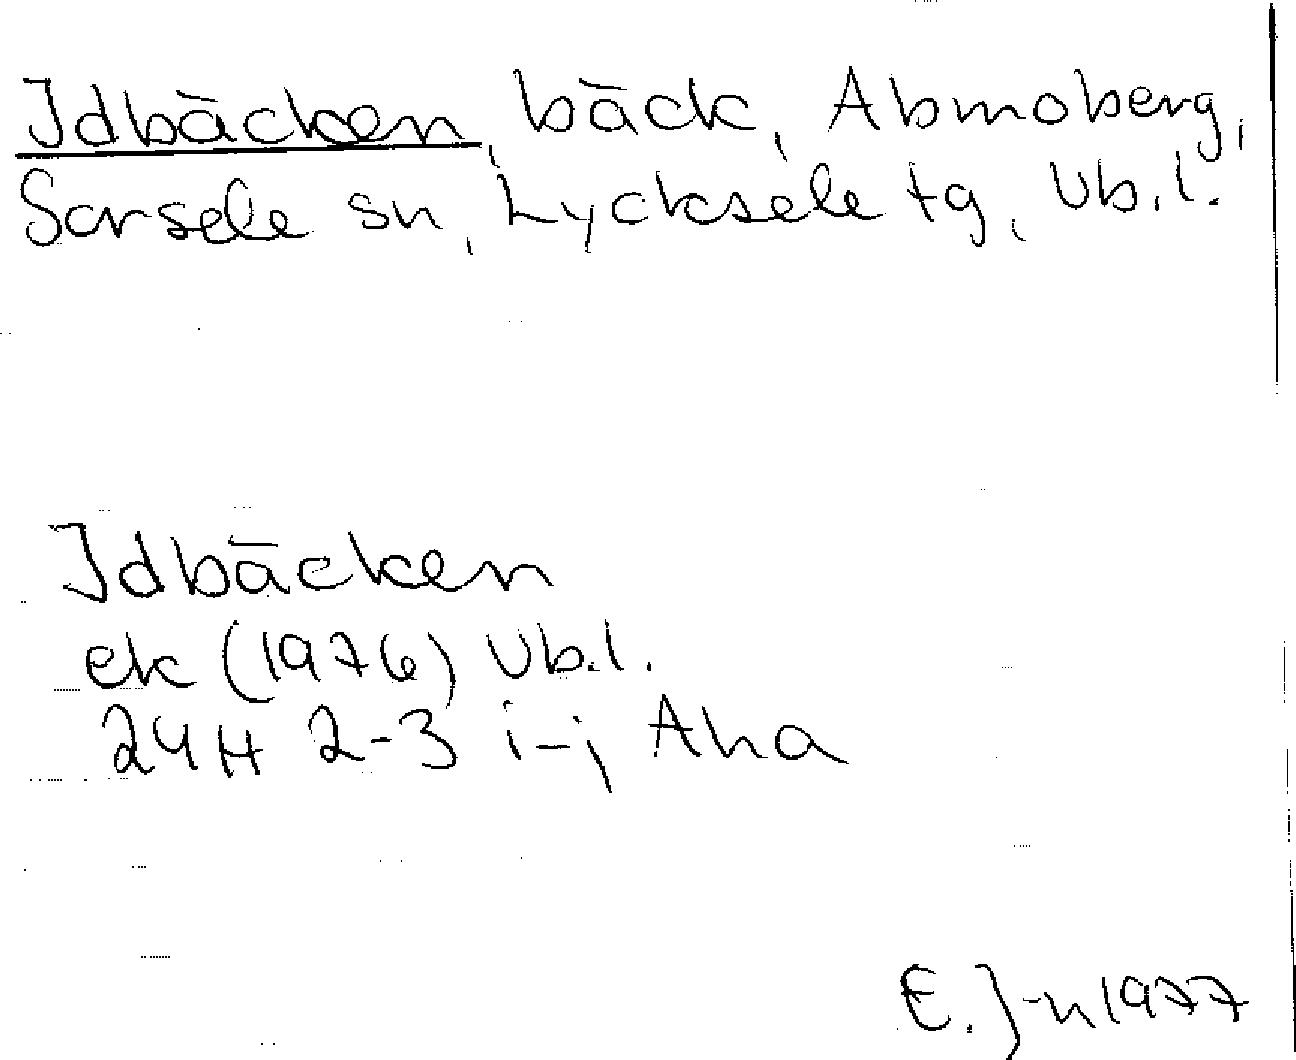 Idbäcken, bäck, Abmoberg,
Sorsele sn, Lycksele tg, Vb.l.
Idbäcken
ek (1976) Vb.l.
24H 2-3 i-j Aha
E. J-n 1977